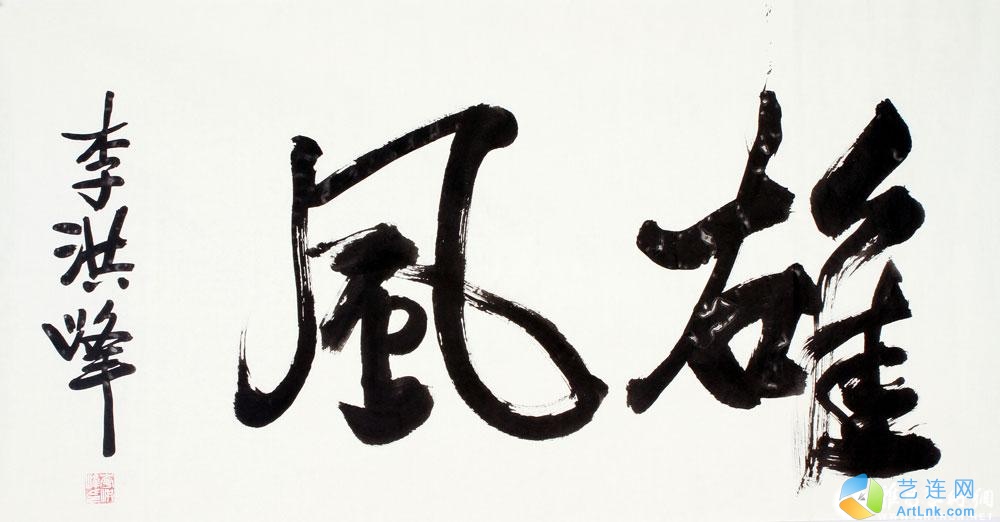 雄風
李洪峰
艺连网
ArtLnk.com